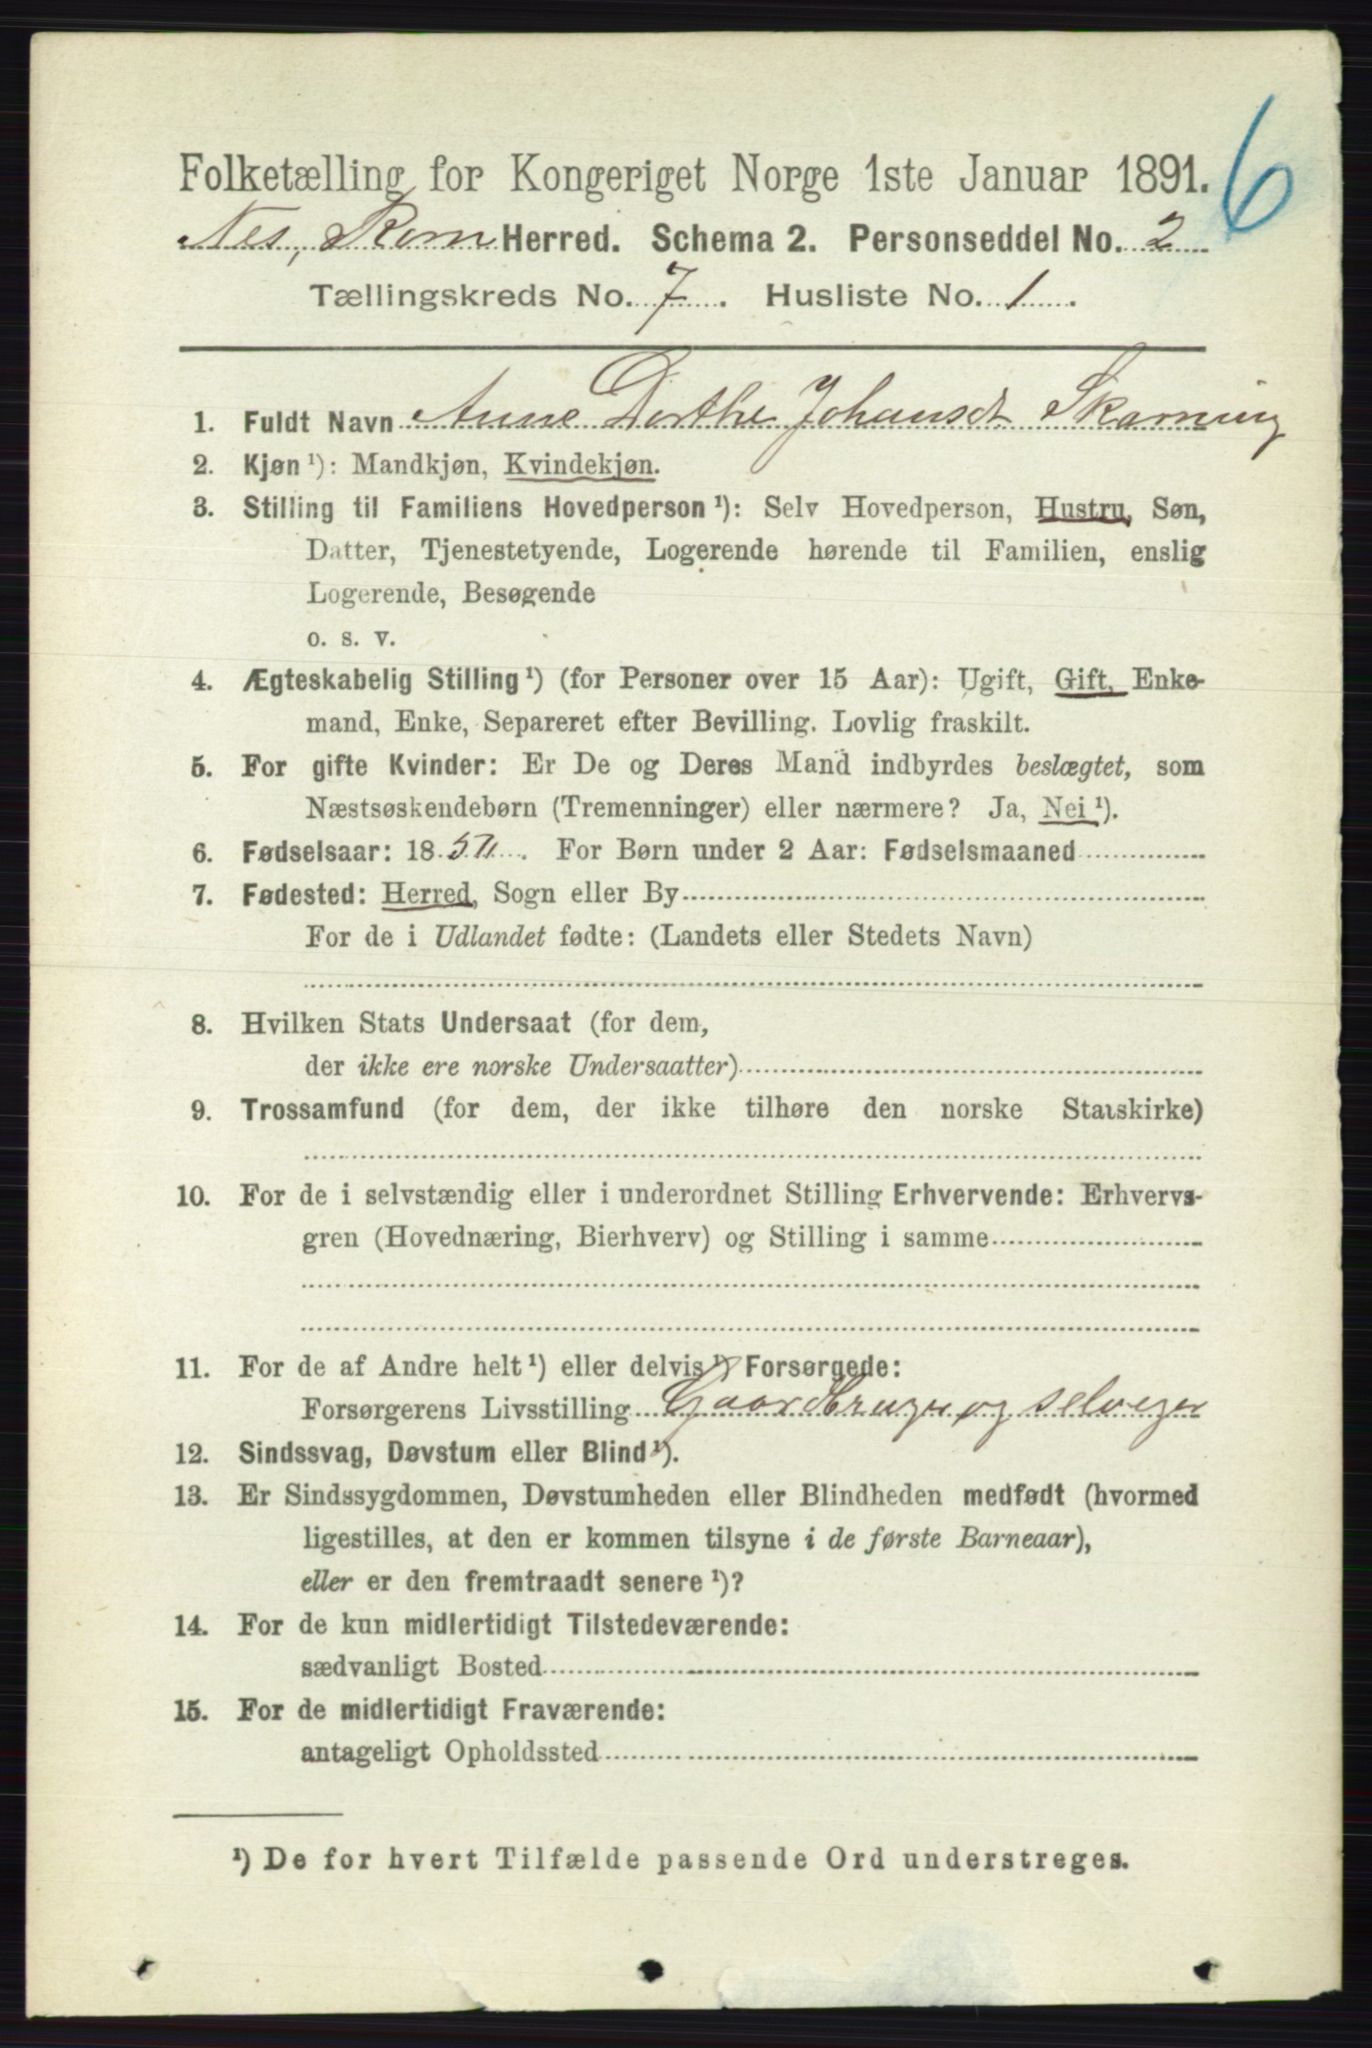 6
Folketælling for Kongeriget Norge 1ste Januar 1891.
Nes, Rom Herred. Schema 2. Personseddel No. 2
Tællingskreds No. 7. Husliste No. 1.
1. Fuldt Navn Anne Dorthe Johansdt Skarning
2. Kjøn ¹): Mandkjøn, Kvindekjøn.
3. Stilling til Familiens Hovedperson ¹): Selv Hovedperson, Hustru, Søn,
Datter, Tjenestetyende, Logerende hørende til Familien, enslig
Logerende, Besøgende
o. s. v.
4. Ægteskabelig Stilling ¹) (for Personer over 15 Aar): Ugift, Gift, Enke-
mand, Enke, Separeret efter Bevilling. Lovlig fraskilt.
5. For gifte Kvinder: Er De og Deres Mand indbyrdes beslægtet, som
Næstsøskendebørn (Tremenninger) eller nærmere? Ja, Nei ¹).
6. Fødselsaar: 18 . For Børn under 2 Aar: Fødselsmaaned
7. Fødested: Herred, Sogn eller By
For de i Udlandet fødte: (Landets eller Stedets Navn)
8. Hvilken Stats Undersaat (for dem,
der ikke ere norske Undersaatter)
9. Trossamfund (for dem, der ikke tilhøre den norske Statskirke)
10. For de i selvstændig eller i underordnet Stilling Erhvervende: Erhvervs-
gren (Hovednæring, Bierhverv) og Stilling i samme
11. For de af Andre helt ¹) eller delvis ¹) Forsørgede:
Forsørgerens Livsstilling Gaardbruger og selveger
12. Sindssvag, Døvstum eller Blind ¹).
13. Er Sindssygdommen, Døvstumheden eller Blindheden medfødt (hvormed
ligestilles, at den er kommen tilsyne i de første Barneaar),
eller er den fremtraadt senere ¹)?
14. For de kun midlertidigt Tilstedeværende:
sædvanligt Bosted
15. For de midlertidigt Fraværende:
antageligt Opholdssted
¹) De for hvert Tilfælde passende Ord understreges.